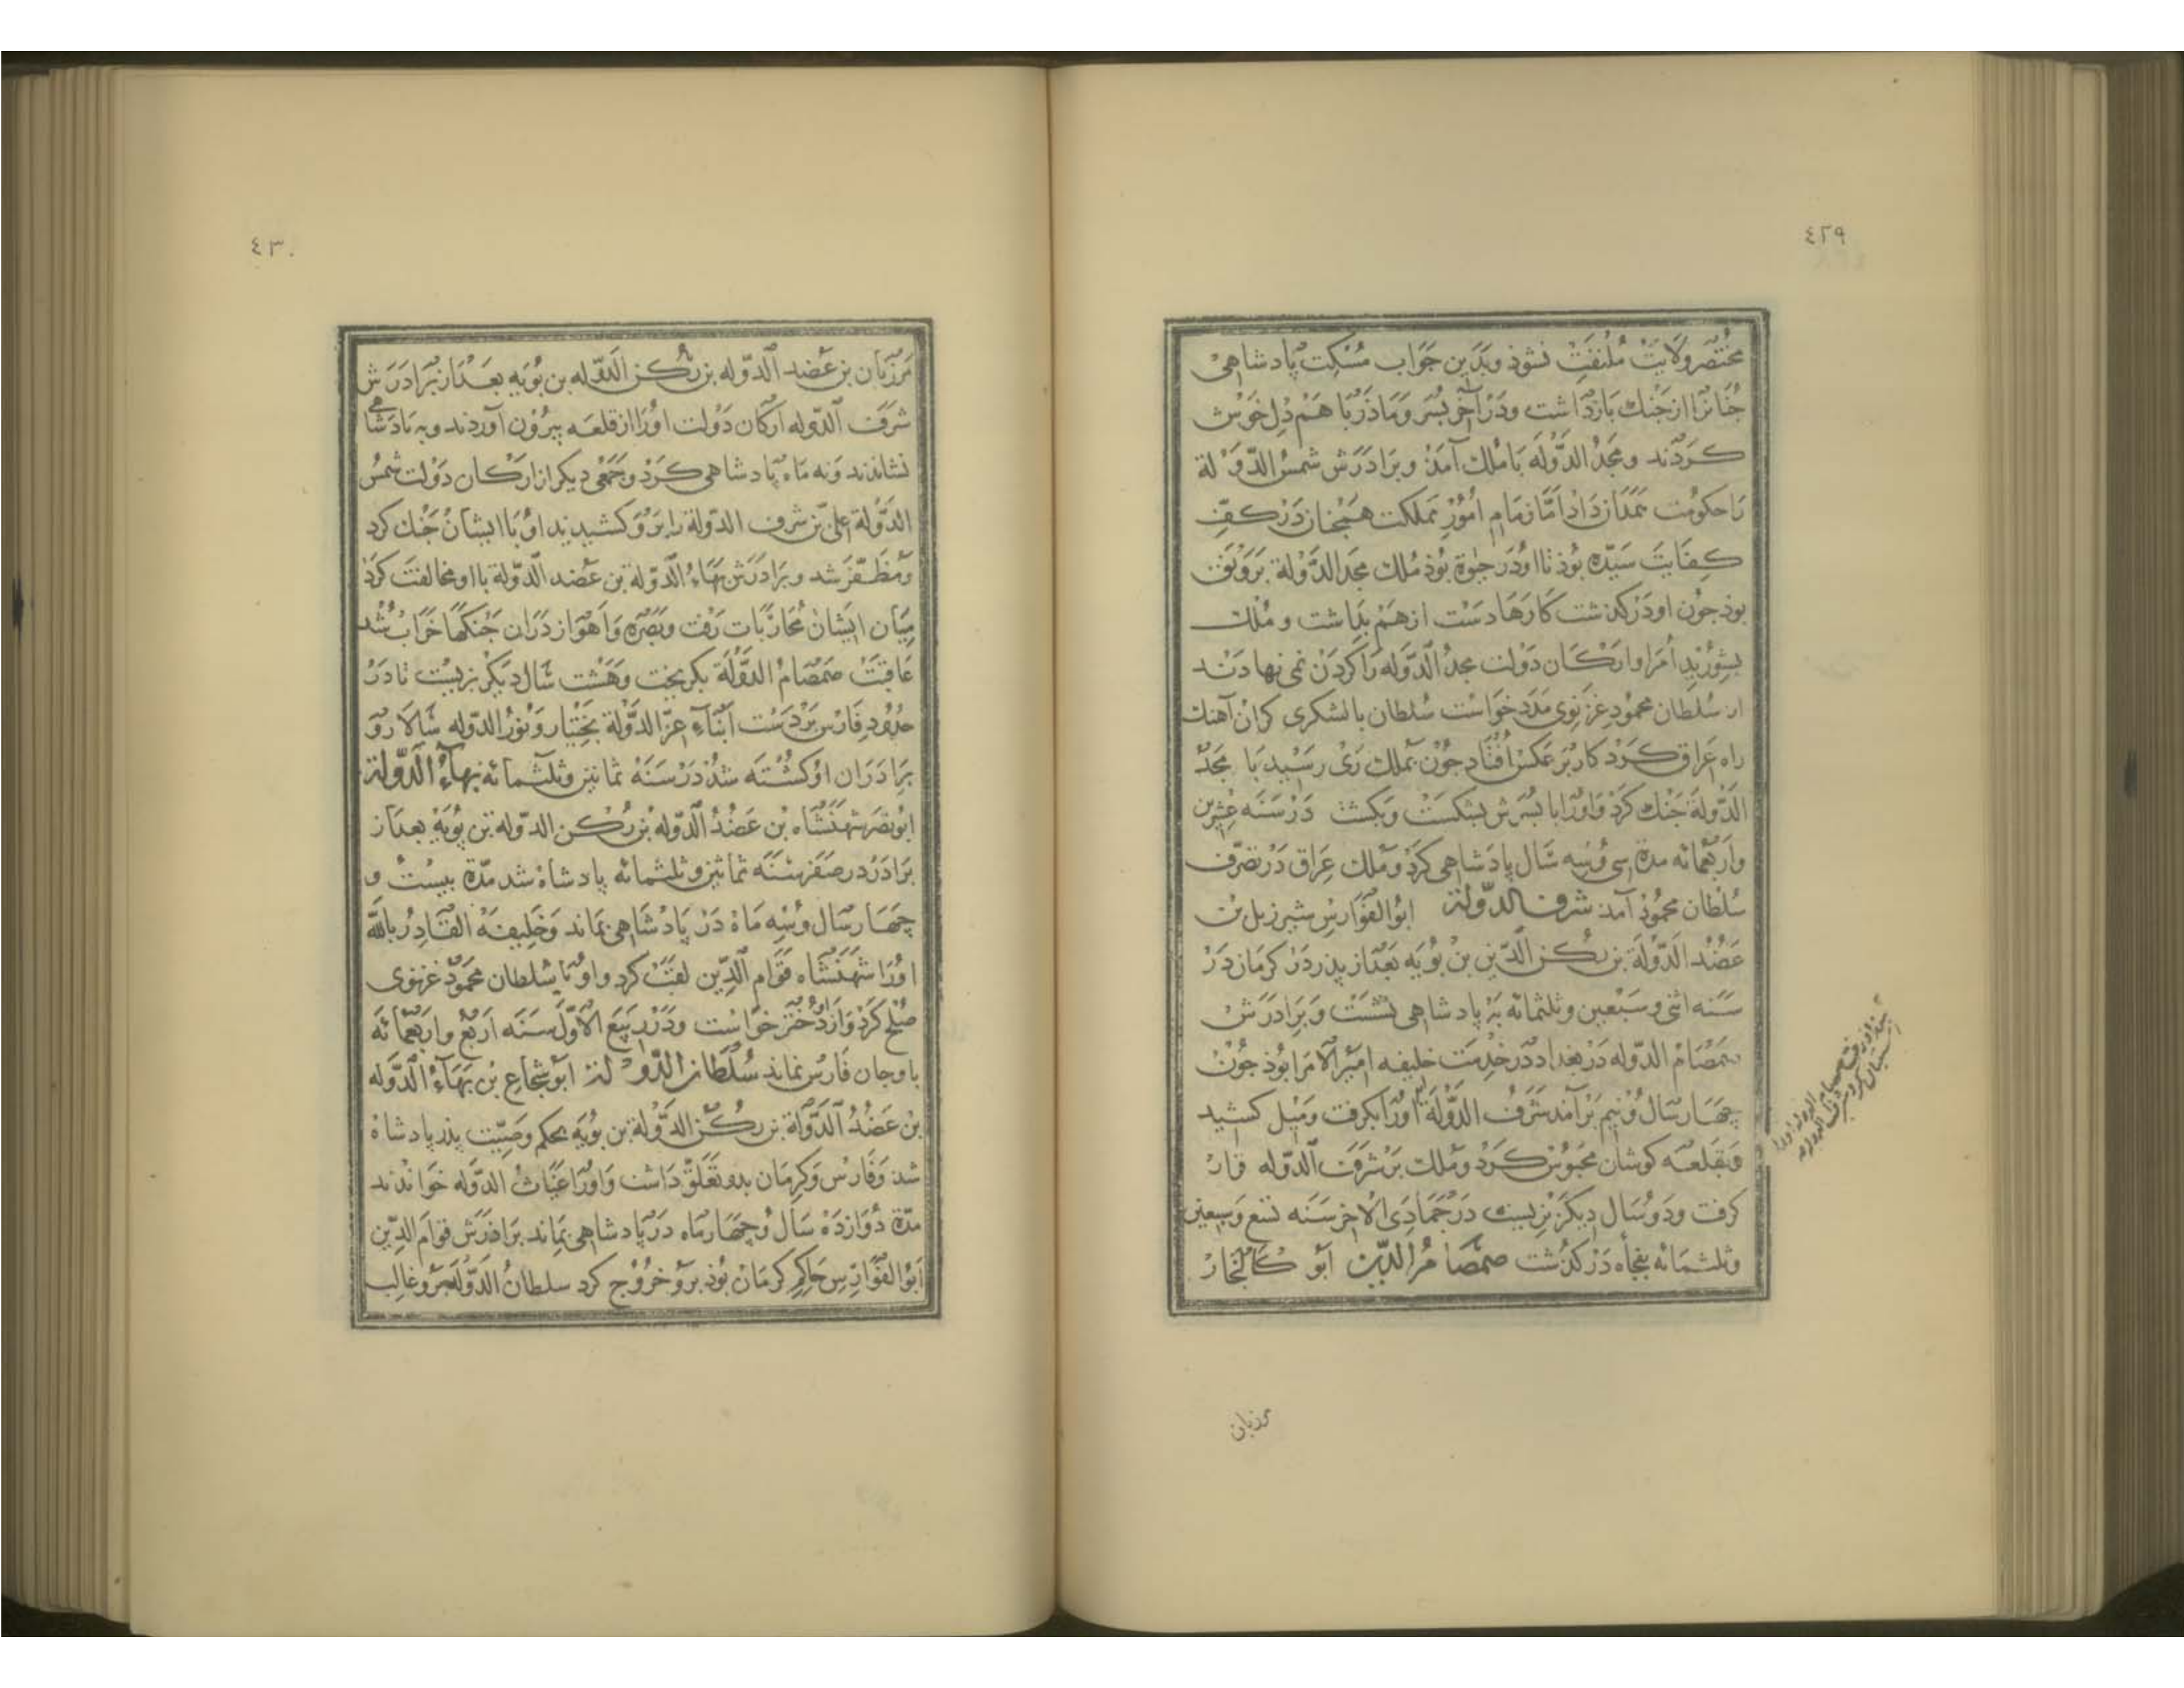 ٤٢٩
مختصر ولایت ملتفت نشوذ وبدین جواب مسکت پادشاهی
جنانرا از جنك بازداشت ودر آخر پسر ومادر با هم دل خوش
کردند ومجد الدوله با ملك آمذ وبرادرش شمس الدولة
را حکومت همدان داد اما زمام امور مملکت همجنان در کف
کفایت سیده بوذ تا او در حیوة بوذ ملك مجد الدولة بر رونق
بوذ جون او در کذشت کارها دست از هم بداشت و ملك
بشوریذ امرا وارکان دولت مجد الدوله را کردن نمی نهادند
از سلطان محمود غزنوی مدد خواست سلطان با لشکری کران آهنك
راه عراق کرد کار بر عکس افتاد جون بملك ری رسید با مجد
الدولة جنك کرد واورا با پسرش بشکست وبکشت در سنه عشرین
واربعمائه مدة سی وسه سال پادشاهی کرد وملك عراق در تصرف
سلطان محمود آمذ شرف الدولة ابو الفوارس شیرزیل بن
عضد الدولة بن رکن الدین بن بویه بعد از پدر در کرمان در
سنه اثنی وسبعین وثلثمائه به پادشاهی نشست وبرادرش
صمصام الدوله در بغداد در خدمت خلیفه امیر الامرا بوذ جون
جهار سال ونیم بر آمذ شرف الدولة اورا بکرفت ومیل کشید
وبقلعه کوشان محبوس کرد وملك بر شرف الدوله قرار
کرفت ودو سال دیکر بزیست در جمادی الاخر سنه تسع وسبعین
وثلثمائه بفجأه در کذشت صمصام الدین ابو کالنجار
مرزبان
٤٣٠
مرزبان بن عضد الدوله بن رکن الدوله بن بویه بعد از برادرش
شرف الدوله ارکان دولت اورا از قلعه بیرون آوردند وبه پادشاهی
نشاندند ونه ماه پادشاهی کرد وجمعی دیکر از ارکان دولت شمس
الدولة علی بن شرف الدولة را برو کشیدند او با ایشان جنك کرد
ومظفر شد وبرادرش بهاء الدولة بن عضد الدولة با او مخالفت کرد
میان ایشان محاربات رفت وبصره واهواز دران جنکها خراب شد
عاقبت صمصام الدولة بکریخت وهشت سال دیکر بزیست تا در
حدود فارس بر دست ابناء عز الدولة بختیار ونور الدوله سالار و
برادران او کشته شد در سنه ثمانین وثلثمائه بهاء الدولة
ابو نصر شهنشاه بن عضد الدوله بن رکن الدوله بن بویه بعد از
برادر در صفر سنه ثمانین وثلثمائه پادشاه شد مدة بیست و
چهار سال وسه ماه در پادشاهی بماند وخلیفه القادر بالله
اورا شهنشاه قوام الدین لقب کرد واو با سلطان محمود غزنوی
صلح کرد وازو دختر خواست ودر ربیع الاول سنه اربع واربعمائه
باوجان فارس نماند سلطان الدولة ابو شجاع بن بهاء الدوله
بن عضد الدولة بن رکن الدولة بن بویه بحکم وصیت پدر پادشاه
شد وفارس وکرمان بدو تعلق داشت واورا غیاث الدوله خواندند
مدة دوازده سال وچهار ماه در پادشاهی بماند برادرش قوام الدین
ابو الفوارس حاکم کرمان بوذ برو خروج کرد سلطان الدوله برو غالب